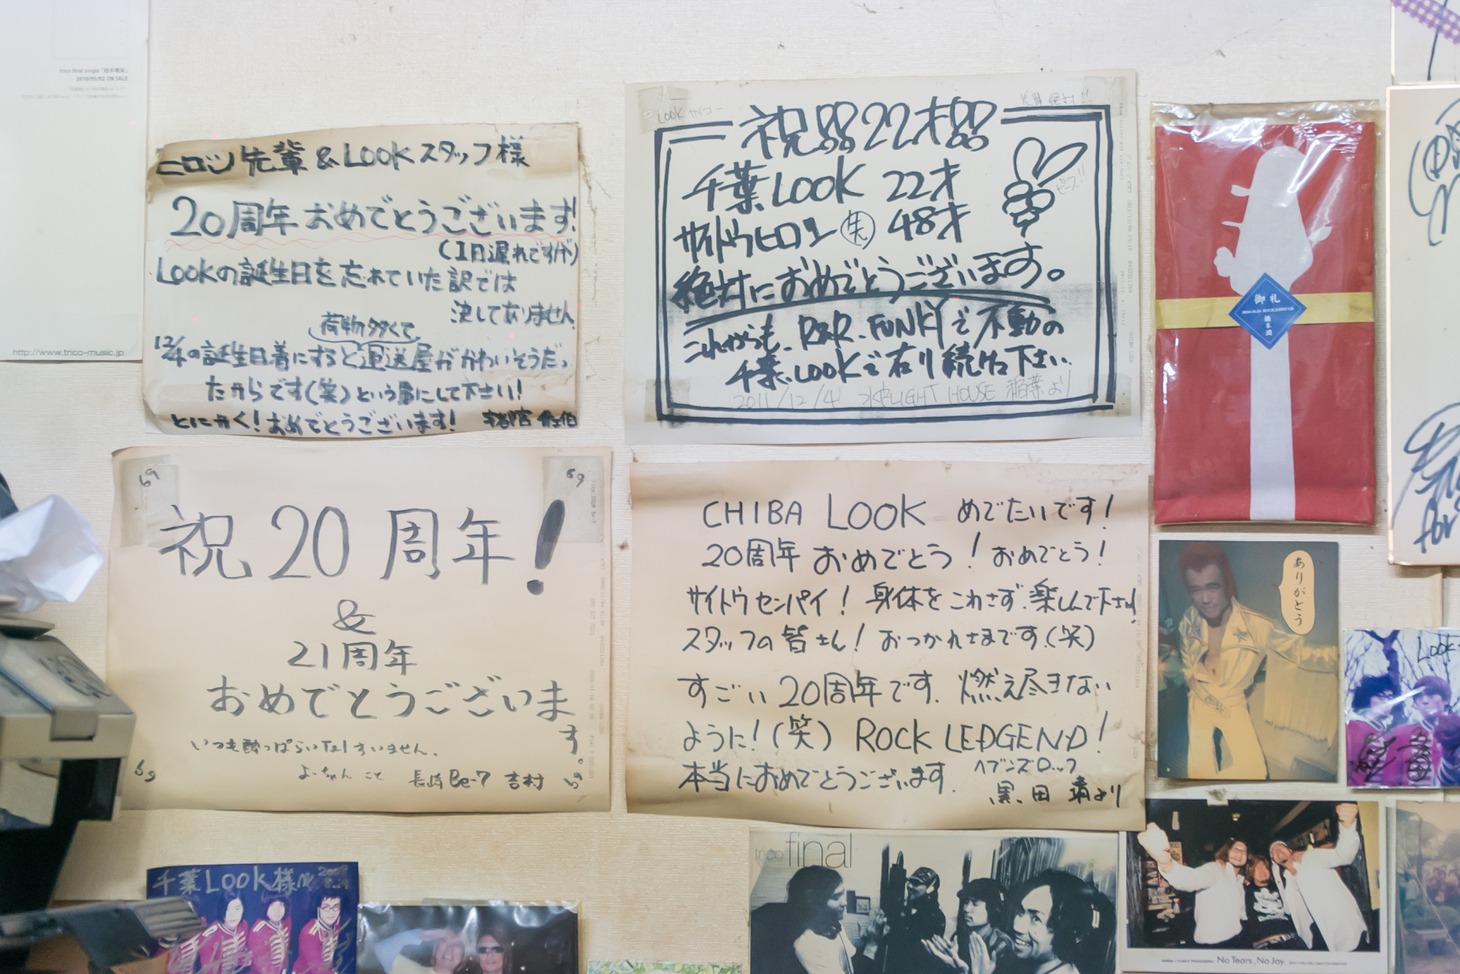 2010/05/02 ON SALE
http://www.trico-music.jp
ヒロシ先輩&LOOKスタッフ様
20周年おめでとうございます!
(1日遅れですが)
LOOKの誕生日を忘れていた訳では
決してありません
荷物多くて
12/4の誕生日着にすると運送屋がかわいそうだっ
たからです(笑)という事にして下さい!
とにかく!おめでとうございます!
祝 22才
千葉LOOK 22才
サイトウヒロシ 48才
絶対におめでとうございます。
これからも、R&R.FUNKYで不動の
千葉LOOKで在り続け下さい
2011/12/4 LIGHT HOUSE 稲葉より
祝20周年!
&
21周年
おめでとうございま
す。
いつも酔っぱらいでほしすいません。
よーちゃん こと 長崎Be-7 吉村
69
69
69
69
CHIBA LOOK めでたいです!
20周年 おめでとう!おめでとう!
サイトウセンパイ!身体をこわさず、楽しんで下さい!
スタッフの皆さん!おつかれさまです(笑)
すごい20周年です.燃え尽きない
ように!(笑) ROCK LEDGEND!
本当におめでとうございます.
ヘブンズロック
黒田 より
御礼
ありがとう
LOOK
for
千葉LOOK様
trico final
No Tears, No Joy.